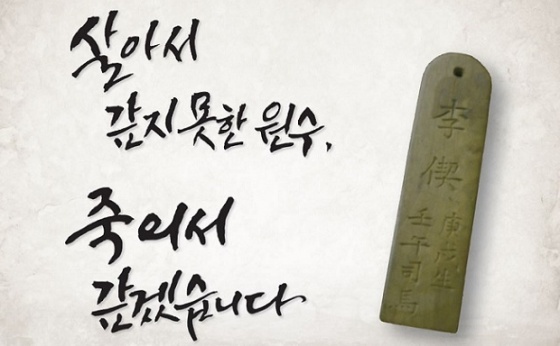 살아서
갚지 못한 원수,
죽어서
갚겠습니다
李偰
庚戌生
壬午司馬